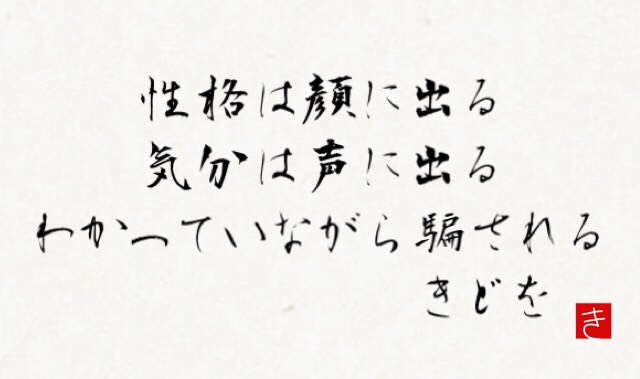 性格は顔に出る
気分は声に出る
わかっていながら騙される
きどを
き